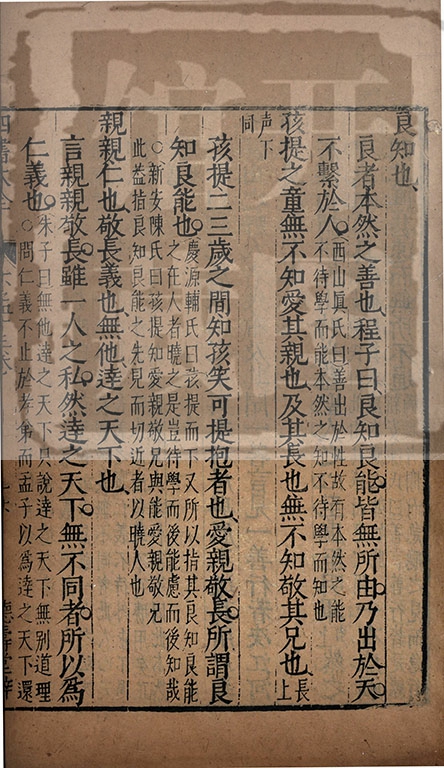 良知也
良者本然之善也程子曰良知良能皆無所由乃出於天
不繫於人
西山眞氏曰善出於性故有本然之能
不待學而能本然之知不待學而知也
孩提之童無不知愛其親也及其長也無不知敬其兄也
長上
声下
同
孩提二三歲之間知孩笑可提抱者也愛親敬長所謂良
知良能也
慶源輔氏曰孩提而下又所以指其良知良能
之在人者曉之是豈待學而後能慮而後知哉
○新安陳氏曰孩提知愛親敬兄與能愛親敬兄
此蓋指良知良能之先見而切近者以曉人也
親親仁也敬長義也無他達之天下也
言親親敬長雖一人之私然達之天下無不同者所以爲
仁義也
朱子曰無他達之天下只說達之天下無别道理
○問仁義不止於孝弟而孟子以爲達之天下還